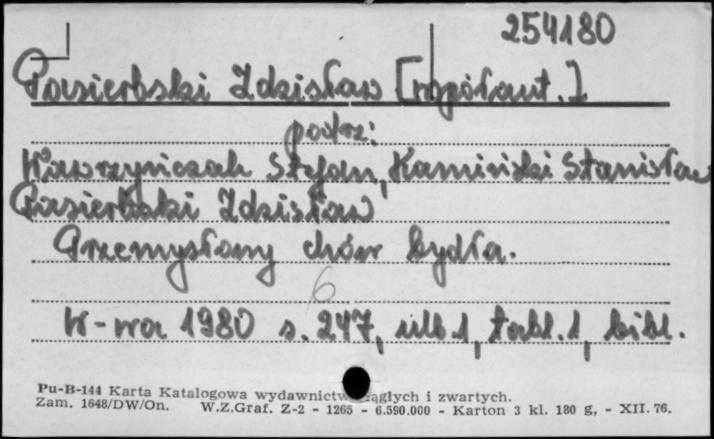 254180
Pasierbski Zdzisław [współaut.]
patrz:
Wawrzyńczak Stefan, Kamiński Stanisław
Pasierbski Zdzisław
Przemysłowy chów bydła.
6
W-wa 1980 s. 247, ulb.1, tabl.1, bibl.
Pu-B-144 Karta Katalogowa wydawnictw ciągłych i zwartych.
Zam. 1648/DW/On. W.Z.Graf. Z-2 - 1265 - 6.590.000 - Karton 3 kl. 180 g, - XII. 76.